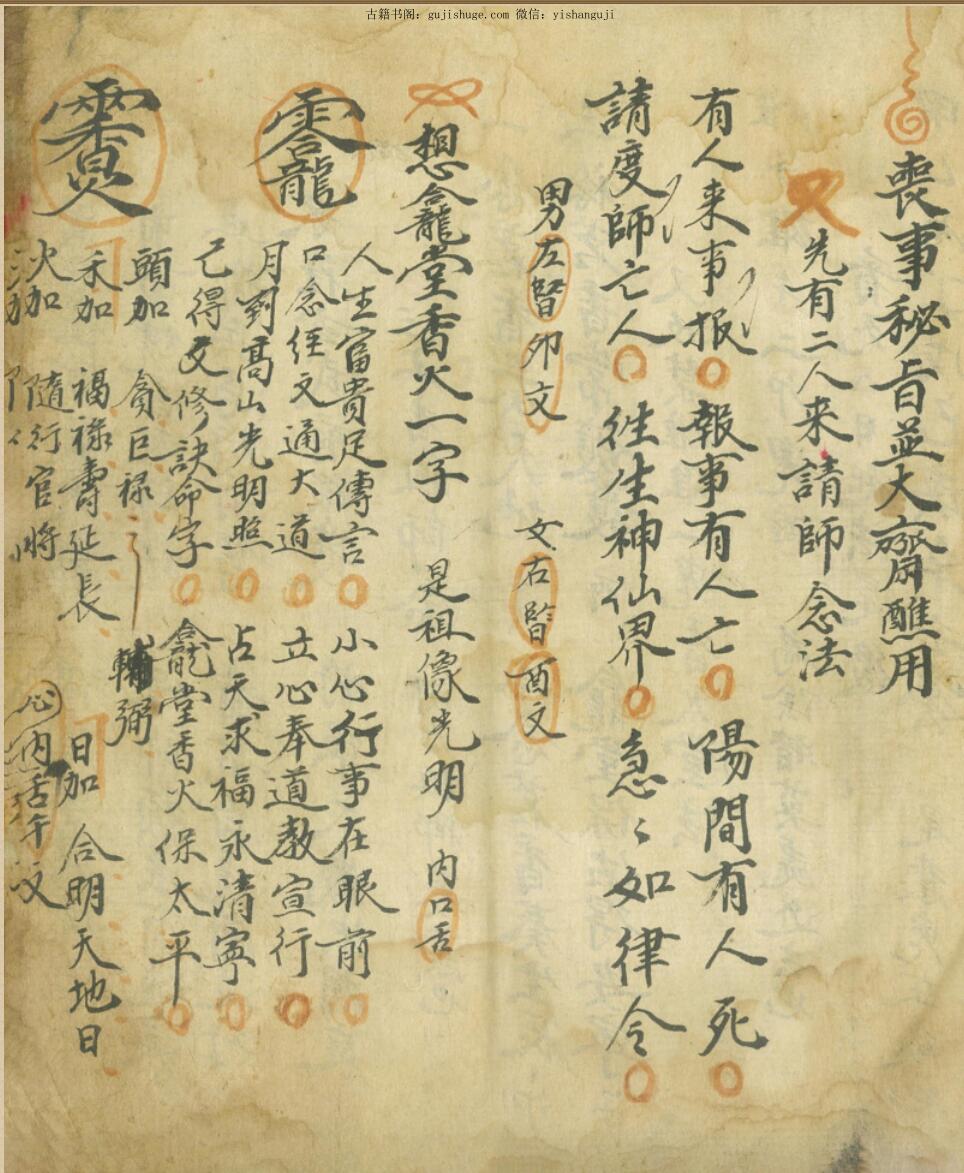 古籍书阁：gujishuge.com 微信：yishanguji
喪事秘旨並大齋醮用
先有二人来請師念法
有人来事报 報事有人亡 陽間有人死
請度師亡人 徃生神仙界 急〻如律令
男左䀿卯文 女右䀿酉文
想龕堂香火一字 是祖像光明 内口舌
人生富貴足傳言 小心行事在眼前
口念经文通大道 立心奉道教宣行
月到高山光明照 占天求福永清寧
己得文修訣命字 龕堂香火保太平
頭加 貪巨禄 輔弼
禾加 福禄壽延長 日加 合明天地日
火加 隨行官將 心内舌午文